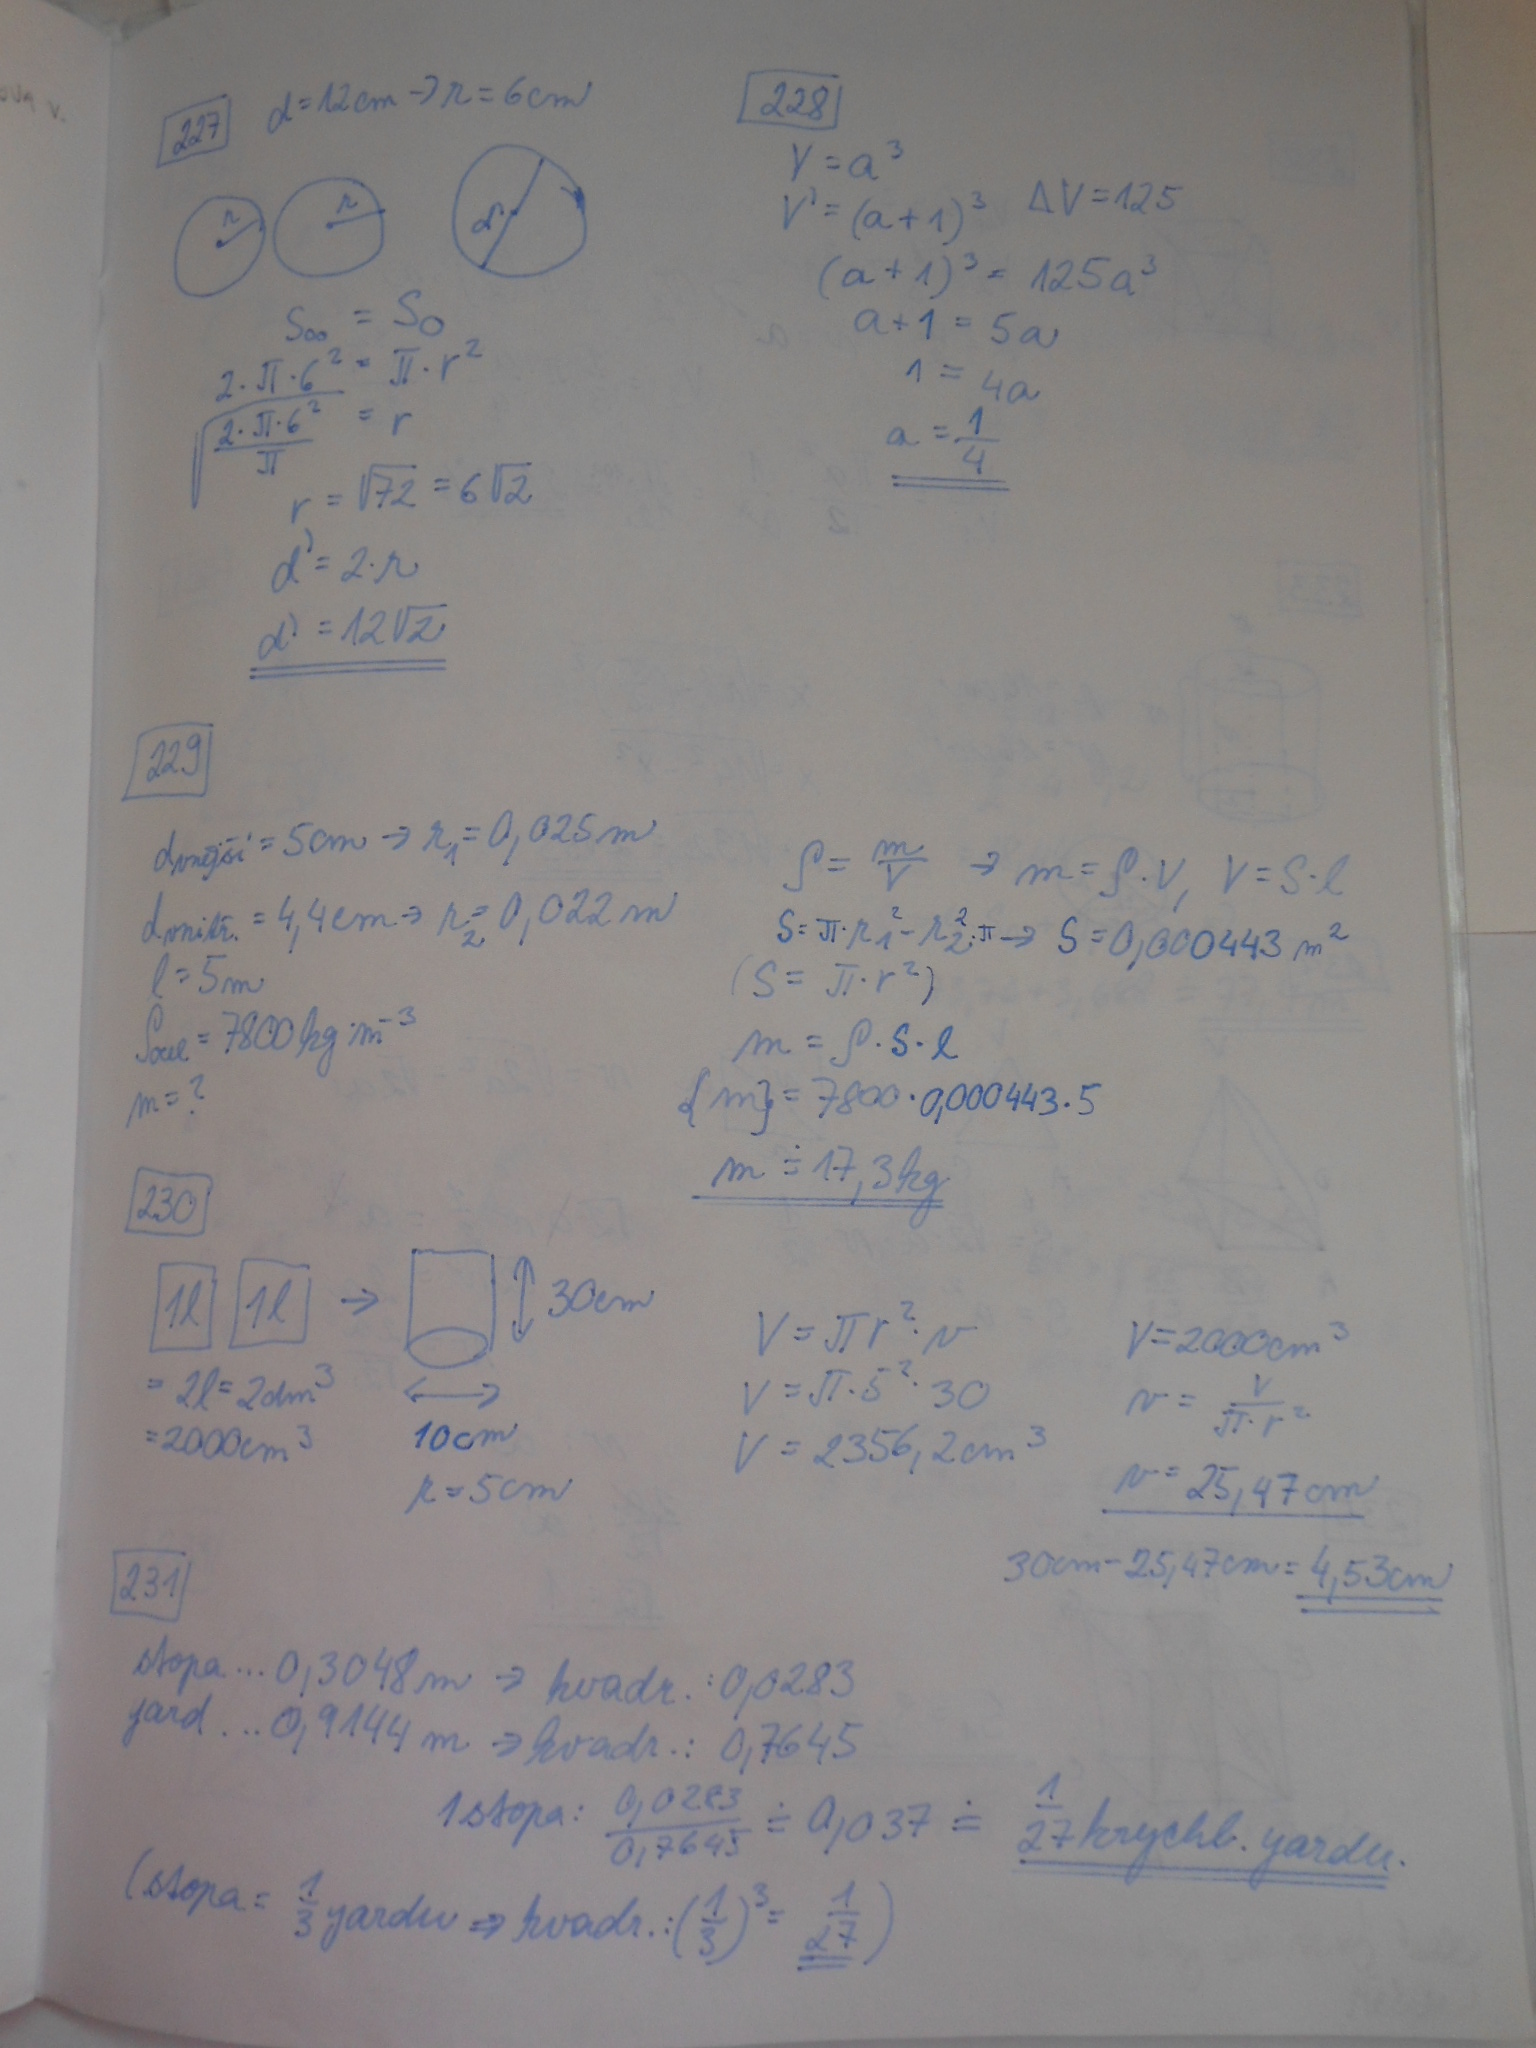 227 d = 12cm → r = 6cm
r r d
S∞ = S○
2·π·6² = π·r²
√(2·π·6²/π) = r
r = √72 = 6√2
d' = 2·r
d' = 12√2
228
V = a³
V' = (a+1)³ ΔV = 125
(a+1)³ = 125a³
a+1 = 5a
1 = 4a
a = 1/4
229
dvnější = 5cm → r₁ = 0,025m
dvnitř. = 4,4cm → r₂ = 0,022m
l = 5m
ρocel = 7800kg·m⁻³
m = ?
ρ = m/V → m = ρ·V, V = S·l
S = π·r₁² - r₂²·π → S = 0,000443 m²
(S = π·r²)
m = ρ·S·l
{m} = 7800·0,000443·5
m ≐ 17,3kg
230
1l 1l → 30cm
= 2l = 2dm³
= 2000cm³
10cm
r = 5cm
V = πr²·v
V = π·5²·30
V = 2356,2cm³
V = 2000cm³
v = V/π·r²
v = 25,47cm
30cm - 25,47cm = 4,53cm
231
stopa ... 0,3048m → kvadr.: 0,0283
yard ... 0,9144m → kvadr.: 0,7645
1 stopa: 0,0283/0,7645 ≐ 0,037 ≐ 1/27 krychl. yardu.
(stopa = 1/3 yardu ⇒ kvadr.: (1/3)³ = 1/27)